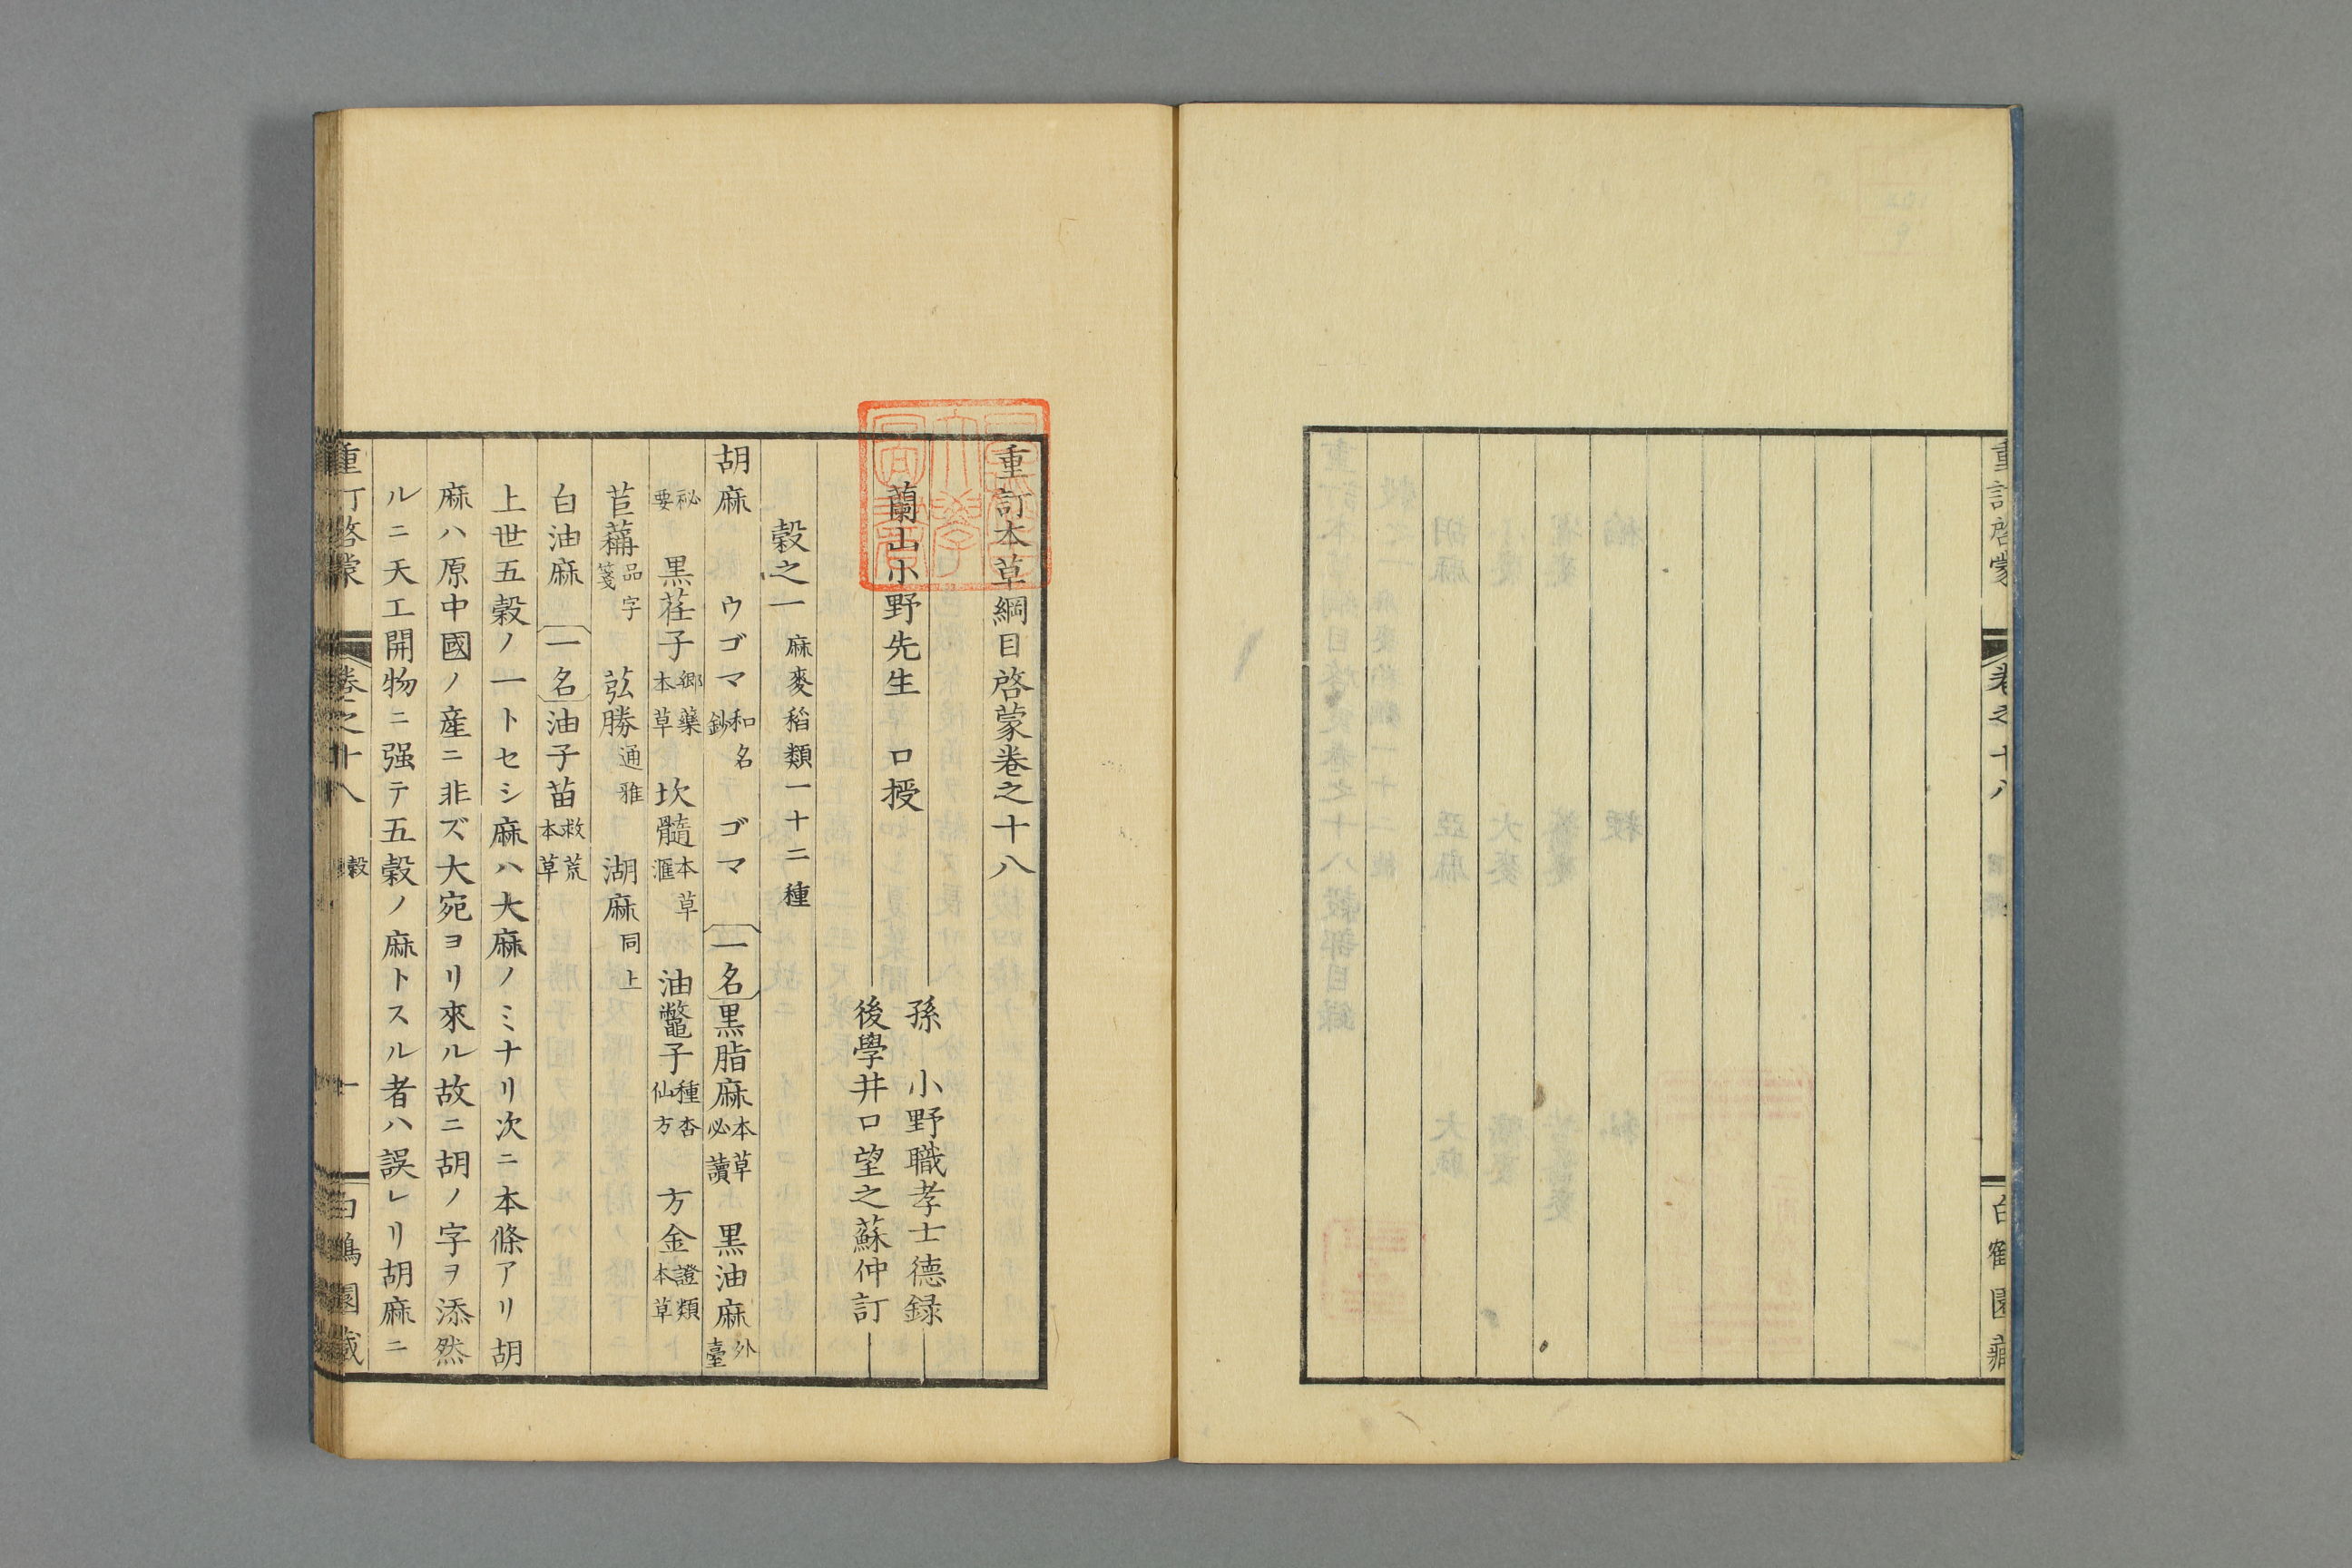 重訂啓蒙 卷之十八 白鶴園藏
重訂本草綱目啓蒙卷之十八
蘭山小野先生 口授
孫 小野職孝士德録
後學井口望之蘇仲訂
穀之一 麻麥稻類一十二種
胡麻 ウゴマ 和名鈔 ゴマ 一名 黒脂麻 本草必讀 黒油麻 外臺
祕要 黒荏子 郷藥本草 坎髓 本草滙 油鼈子 種杏仙方 方金 證類本草
苣蕂 品字箋 䒭勝 通雅 湖麻 同上
白油麻 一名 油子苗 救荒本草
上世五穀ノ一トセシ麻ハ大麻ノミナリ次ニ本條アリ胡
麻ハ原中國ノ産ニ非ズ大宛ヨリ來ル故ニ胡ノ字ヲ添然
ルニ天工開物ニ强テ五穀ノ麻トスル者ハ誤レリ胡麻ニ
重訂啓蒙 卷之十八 穀 一 白鶴園藏